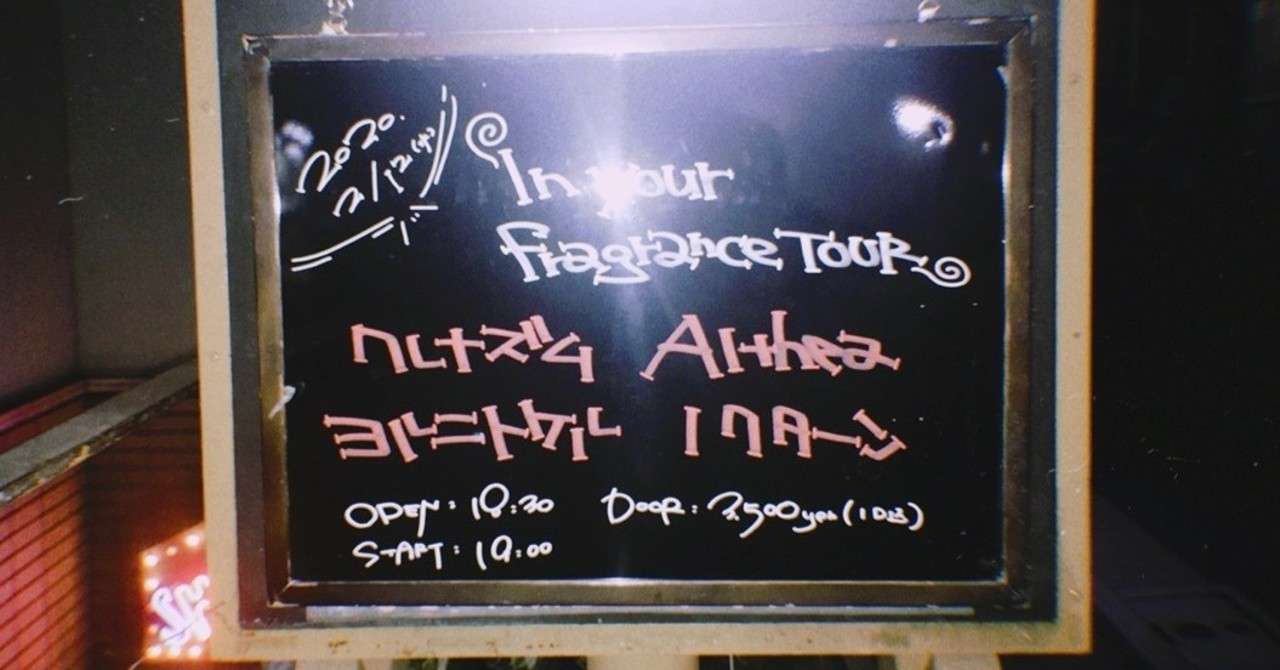 2020.
2/12(水)
In your
fragrance TOUR
クレナズム Althea
ヨルニトケル
OPEN: 18:30 Door:
START: 19:00